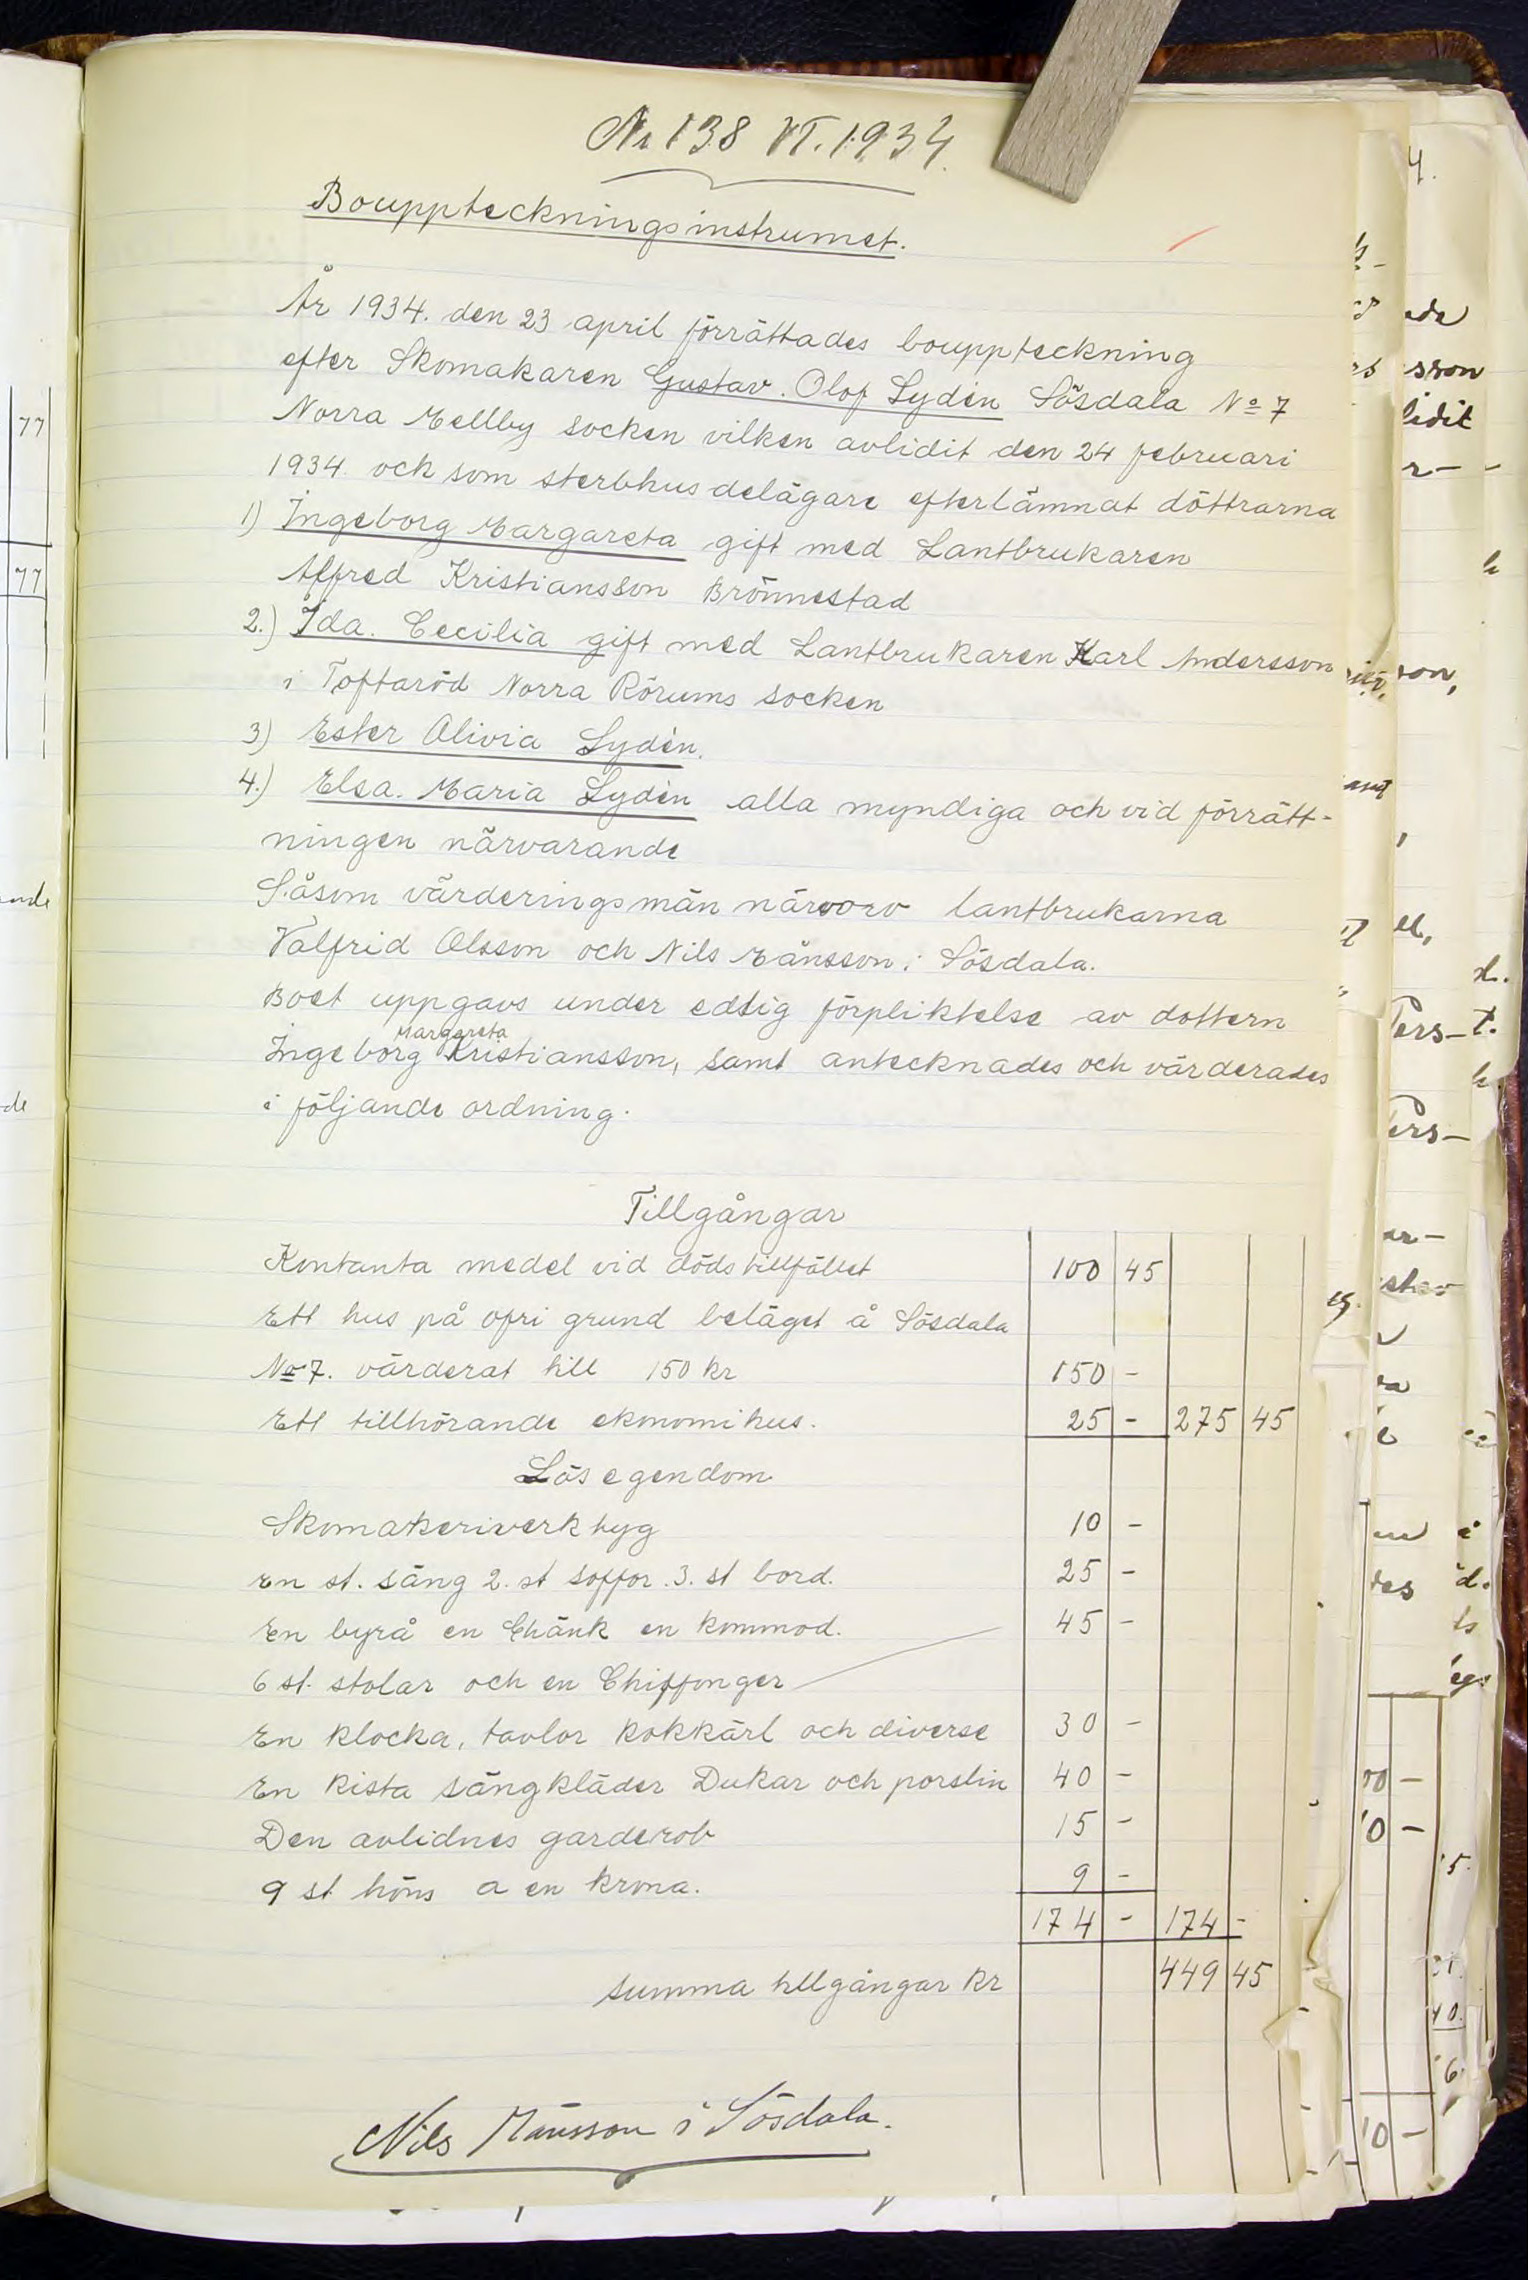 Nr 138 VT. 1934.
Bouppteckningsinstrumet.
År 1934. den 23 april förrättades bouppteckning
efter Skomakaren Gustav. Olof Lydén Sösdala No 7
Norra Mellby socken vilken avlidit den 24 februari
1934. och som sterbhusdelägare efterlämnat döttrarna
1) Ingeborg Margareta gift med Lantbrukaren
Alfred Kristiansson Brönnestad
2.) Ida. Cecilia gift med Lantbrukaren Karl Andersson
i Toftaröd Norra Rörums socken
3) Ester Olivia Lydén.
4.) Elsa. Maria Lydén alla myndiga och vid förrätt-
ningen närvarande
Såsom värderingsmän närvorv lantbrukarna
Valfrid Olsson och Nils Månsson i Sösdala.
Boet uppgavs under edlig förpliktelse av dottern
Margareta
Ingeborg Kristiansson, samt antecknades och värderades
i följande ordning.
Tillgångar
Kontanta medel vid dödstillfället 100 45
Ett hus på ofri grund beläget å Sösdala
No 7. värderat till 150 kr 150 -
Ett tillhörande ekonomihus. 25 - 275 45
Lösegendom
Skomakeriverktyg 10 -
En st. säng 2. st soffor. 3. st bord. 25 -
En byrå en Chänk en kommod. 45 -
6 st. stolar och en Chiffonger
En klocka, tavlor kokkärl och diverse 30 -
En kista sängkläder Dukar och porslin 40 -
Den avlidnes garderob 15 -
9 st höns a en krona. 9 -
174 - 174 -
summa tillgångar kr 449 45
Nils Månsson i Sösdala.